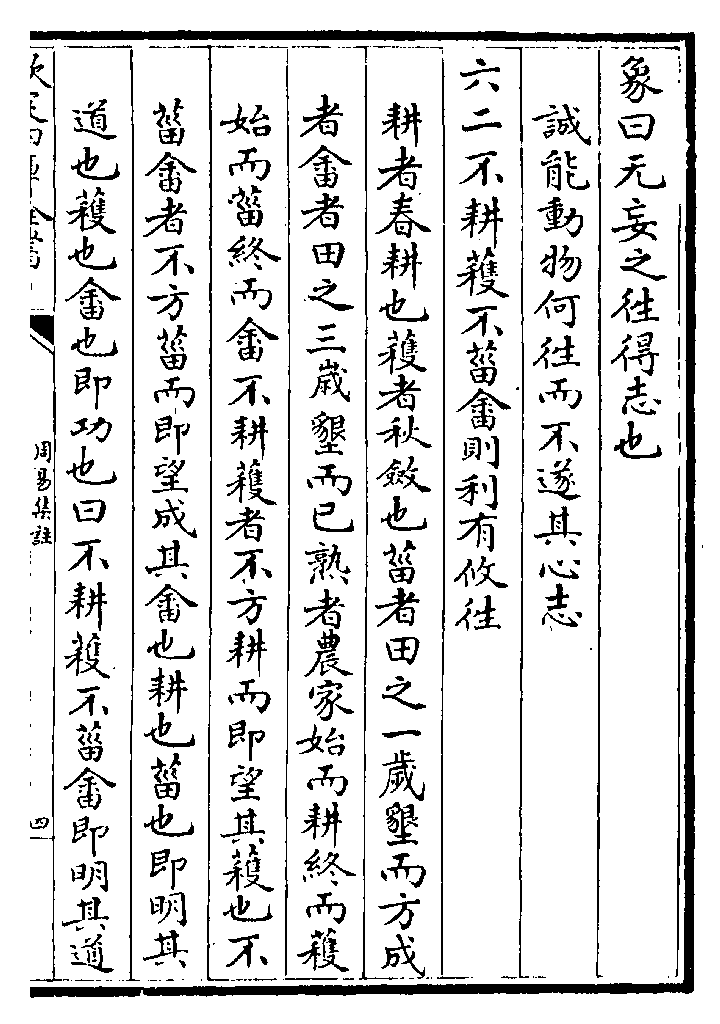 象曰无妄之往得志也
誠能動物何往而不遂其心志
六二不耕穫不菑畬則利有攸往
耕者春耕也穫者秋斂也菑者田之一歲墾而方成
者畬者田之三歲墾而已熟者農家始而耕終而穫
始而菑終而畬不耕穫者不方耕而即望其穫也不
菑畬者不方菑而即望成其畬也耕也菑也即明其
道也穫也畬也即功也曰不耕穫不菑畬即明其道
欽定四庫全書
周易集註
四